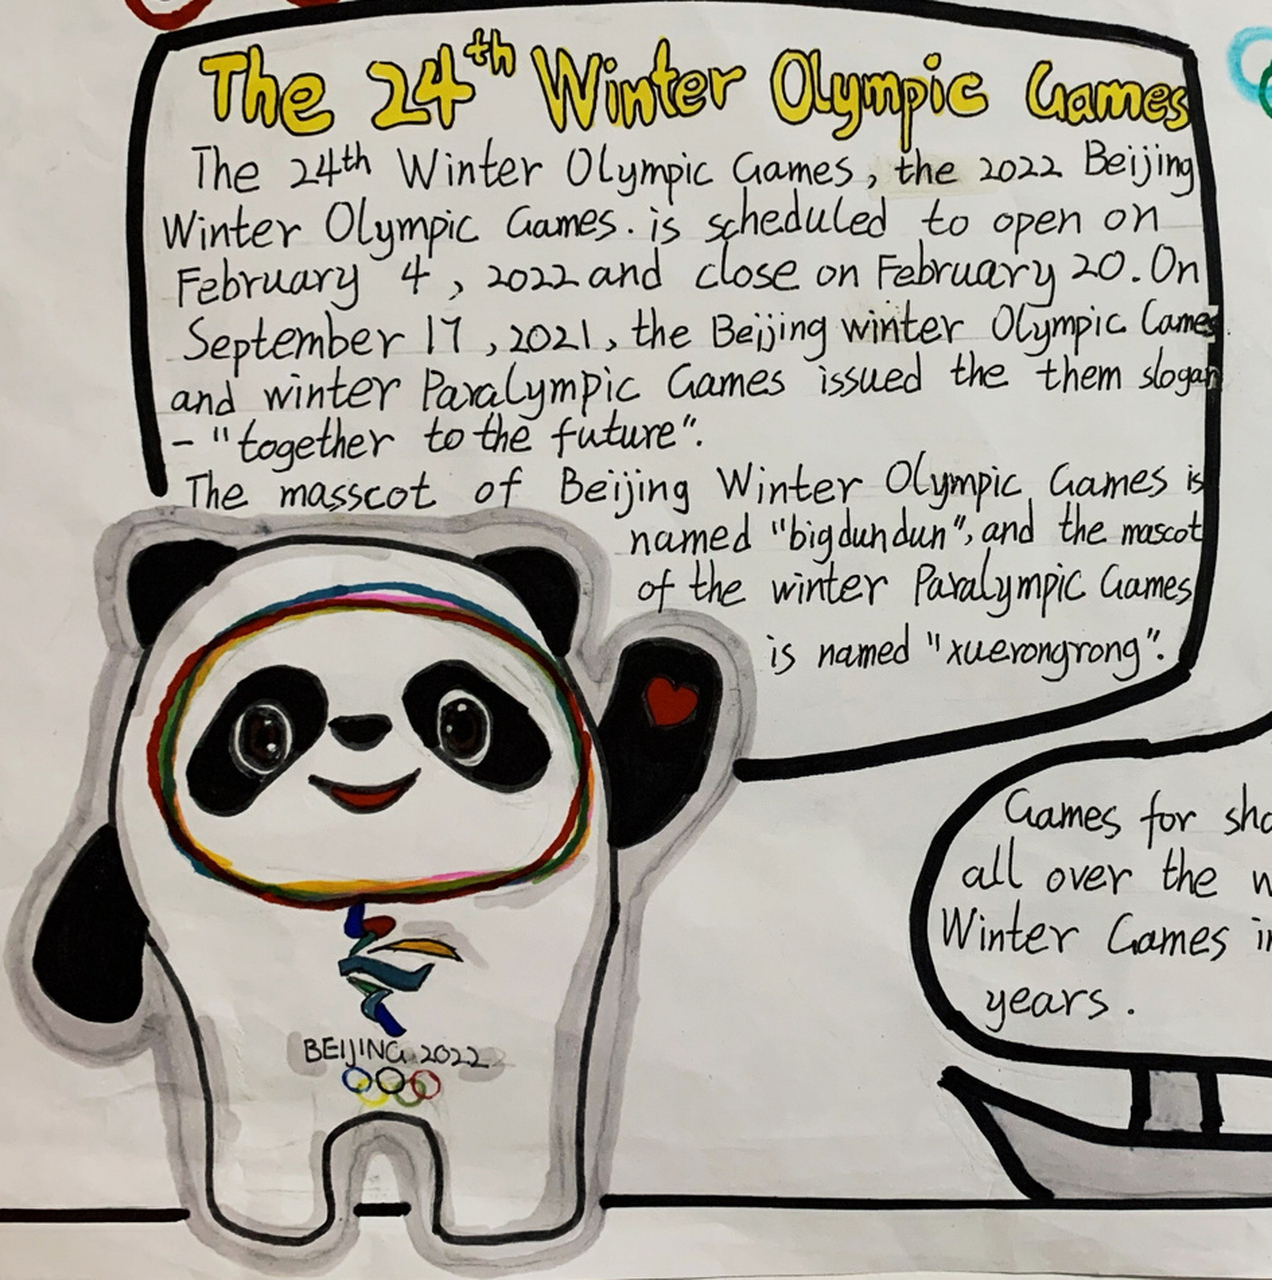 The 24th Winter Olympic Games
The 24th Winter Olympic Games, the 2022 Beijing
Winter Olympic Games. is scheduled to open on
February 4, 2022 and close on February 20. On
September 17, 2021, the Beijing winter Olympic Games
and winter Paralympic Games issued the them slogan
- "together to the future".
The masscot of Beijing Winter Olympic Games is
named "bigdundun", and the mascot
of the winter Paralympic Games
is named "xuerongrong".
Games for
all over the
Winter Games
years.
BEIJING 2022